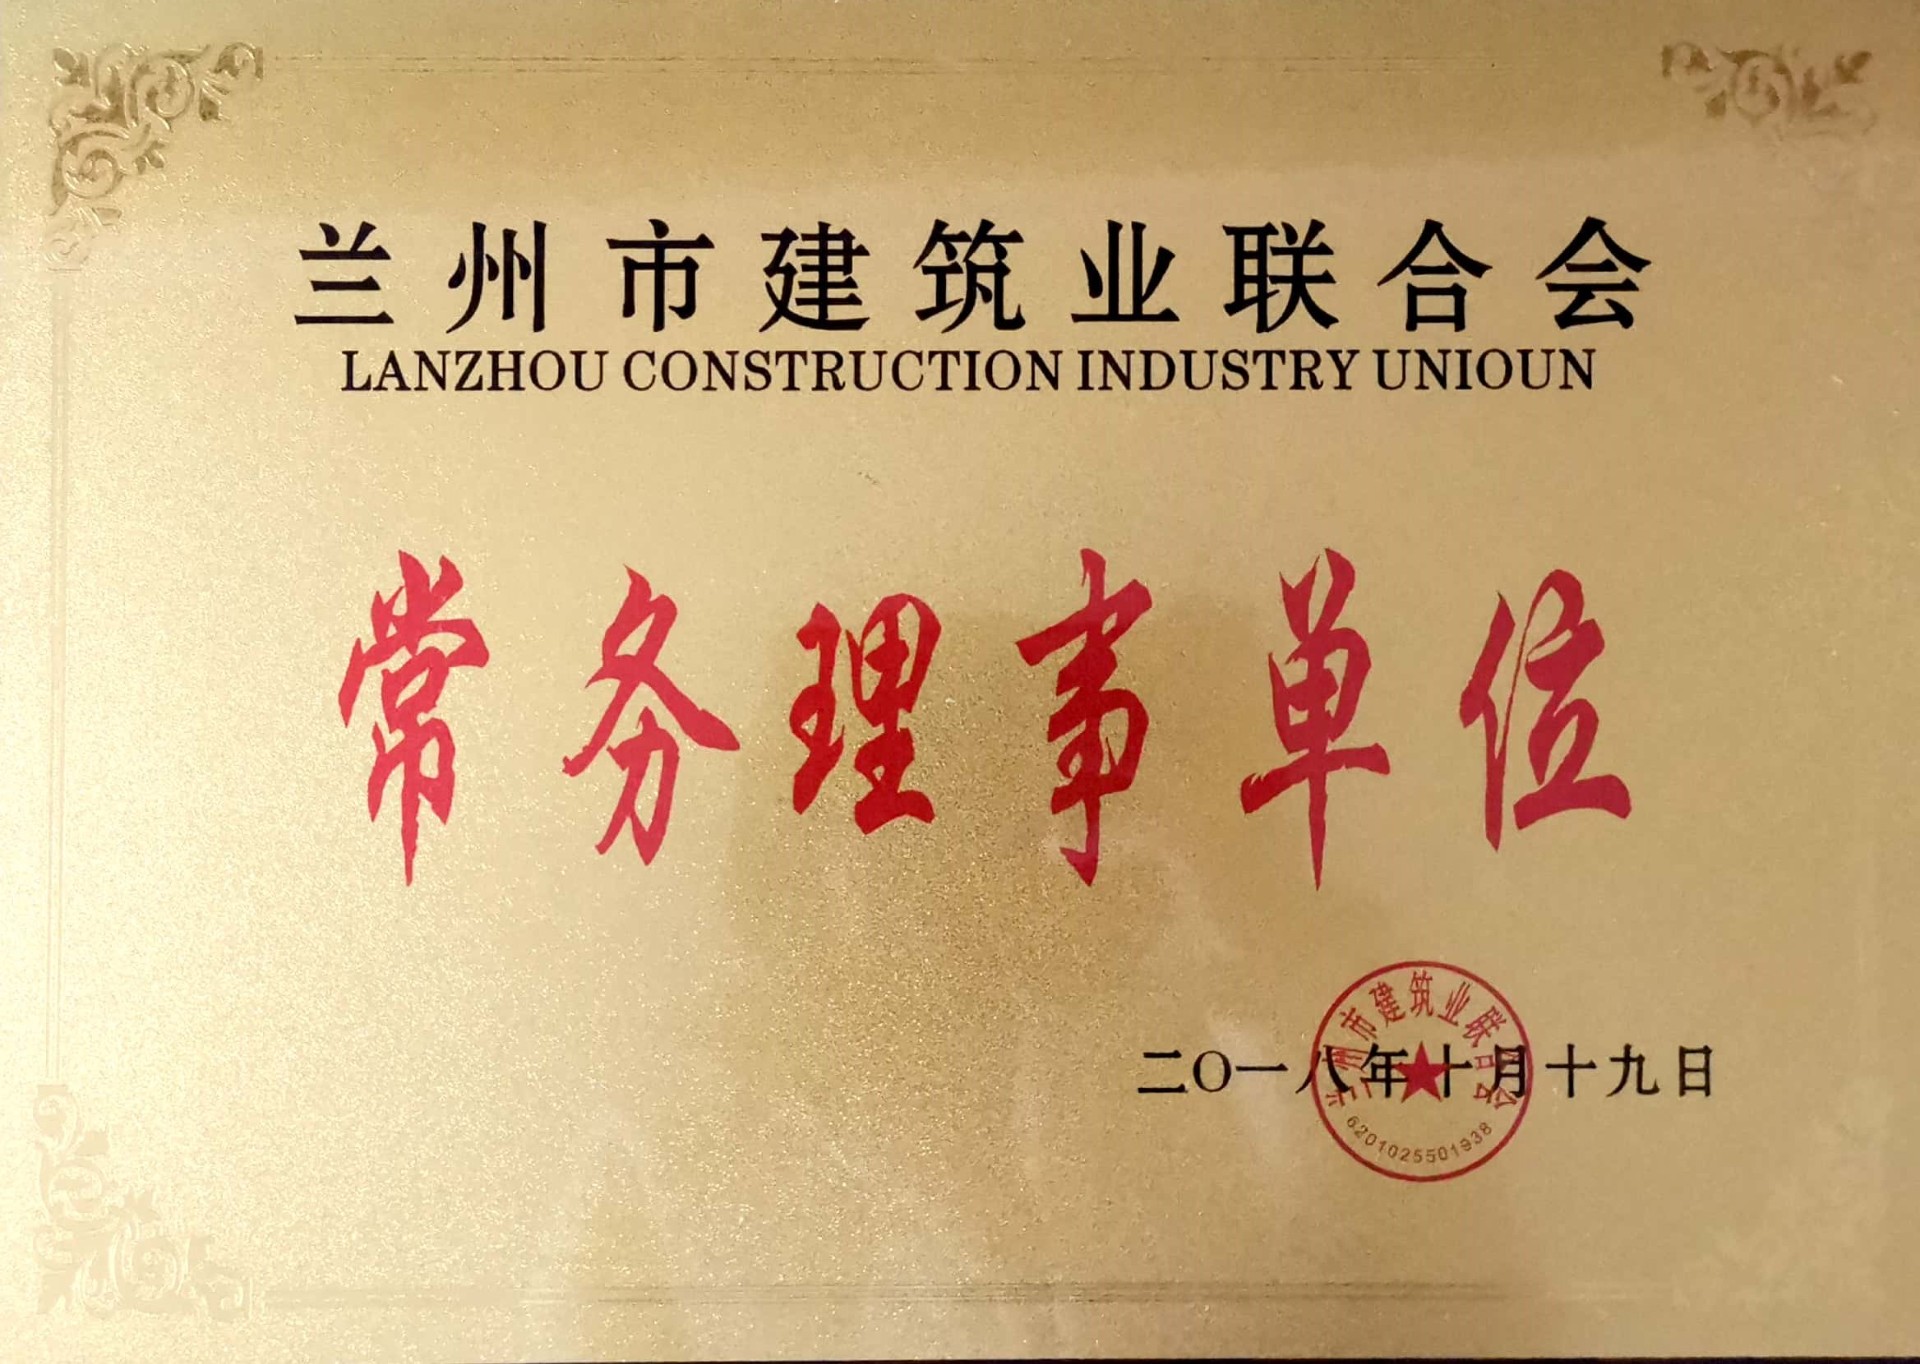 兰州市建筑业联合会
LANZHOU CONSTRUCTION INDUSTRY UNIOUN
常务理事单位
二〇一八年十月十九日
兰州市建筑业联合会
6201025501938